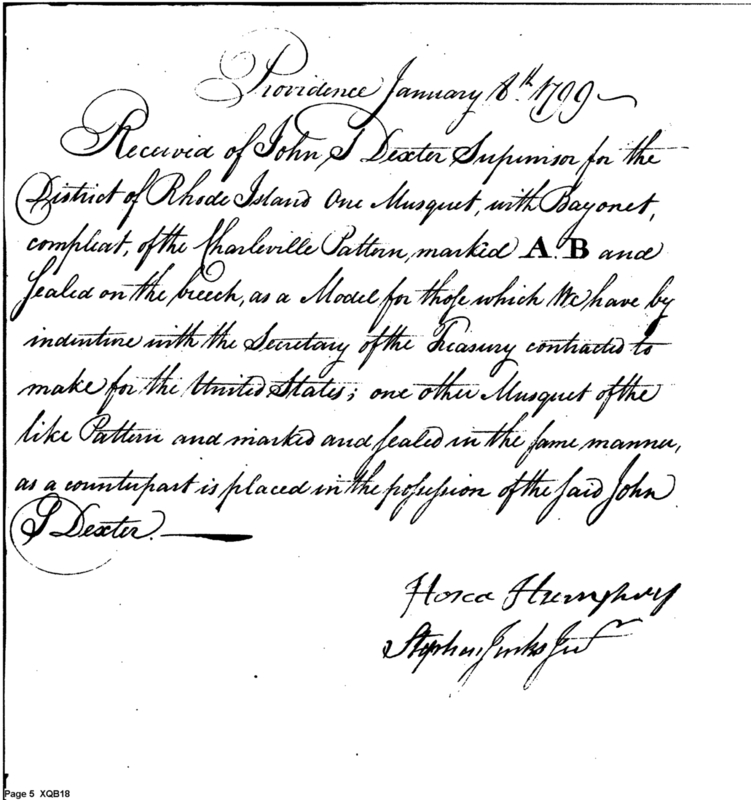 Providence January 8th. 1799
Received of John S Dexter Supervisor for the
District of Rhode Island One Musquet, with Bayonet,
compleat, of the Charleville Pattern, marked A. B and
sealed on the breech, as a Model for those which We have by
indenture with the Secretary of the Treasury contracted to
make for the United States; one other Musquet of the
like Pattern and marked and sealed in the same manner,
as a counterpart is placed in the possession of the said John
S Dexter.
Hosea Humphrey
Stephen Jenks Junr
Page 5 XQB18